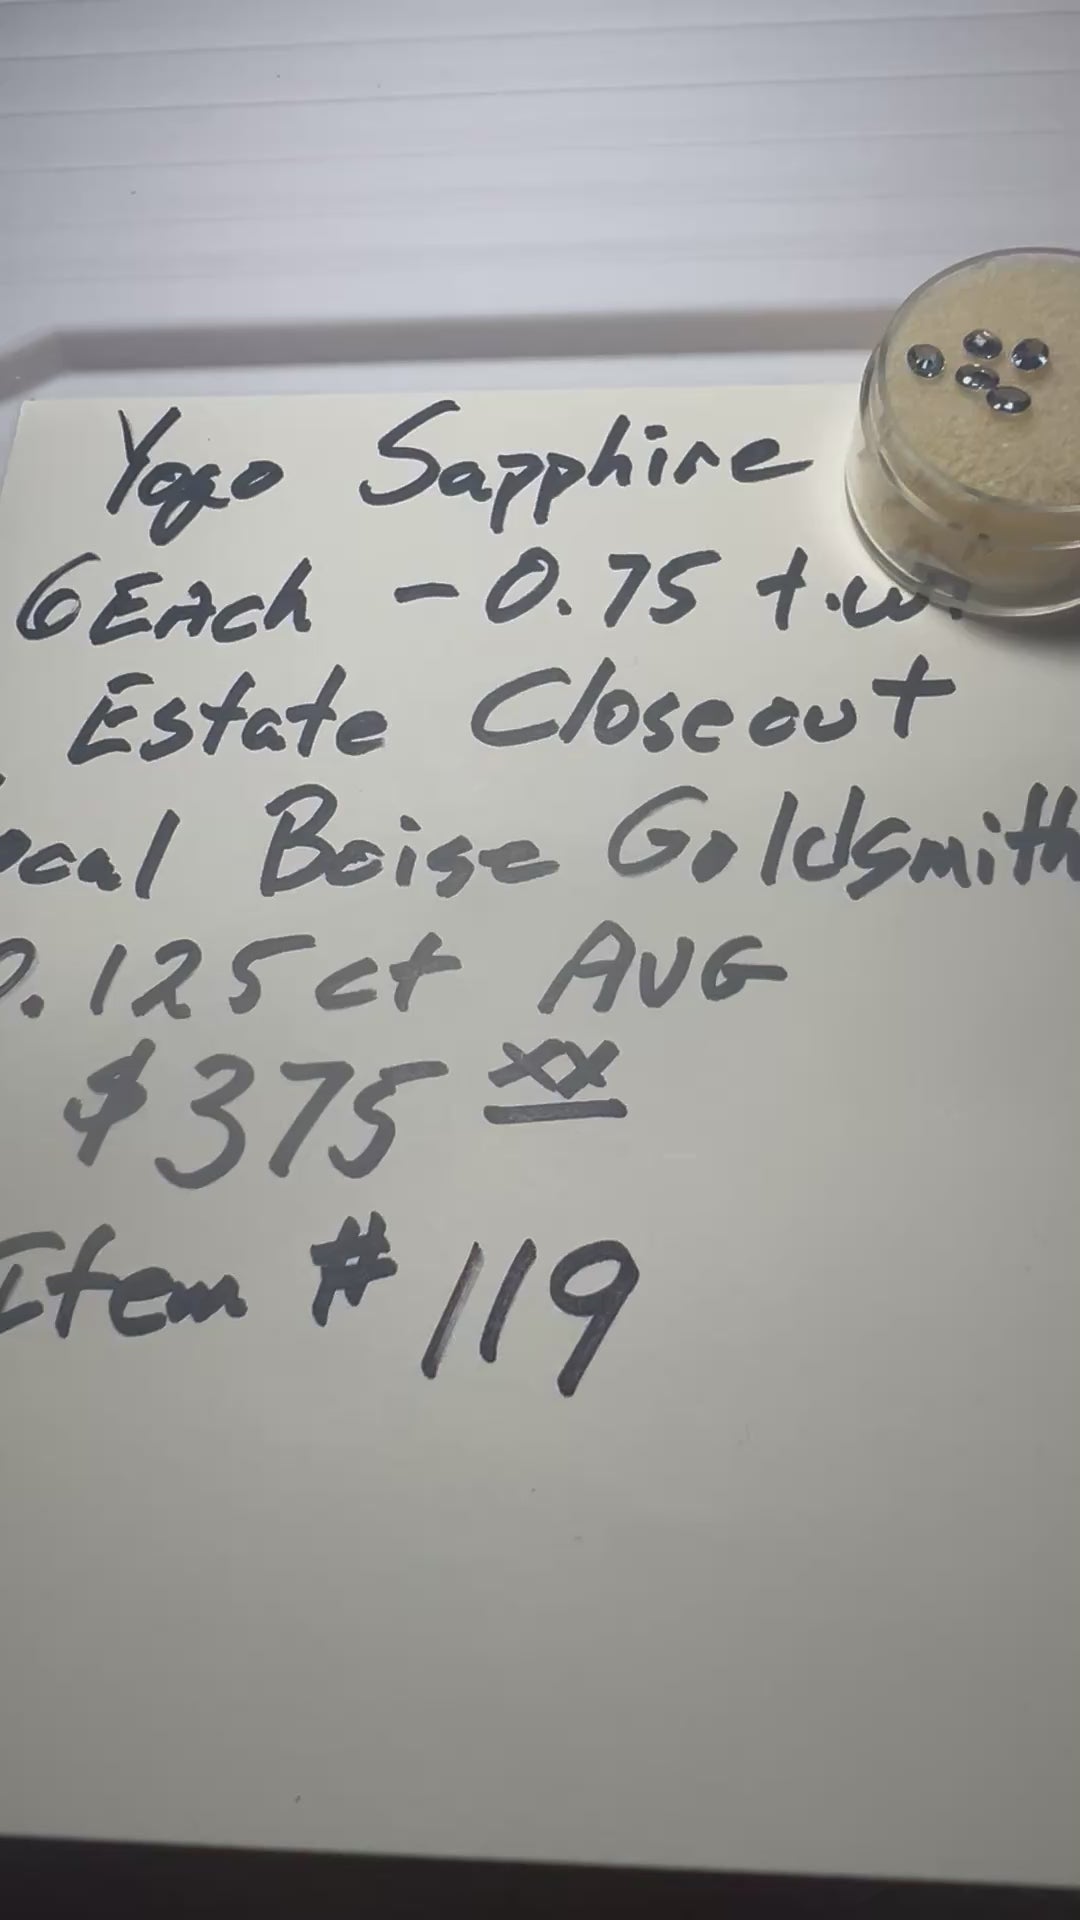 Yogo Sapphire
6 Each - 0.75 t.w.
Estate Closeout
ocal Boise Goldsmith
0.125 ct AVG
$375 xx
Item # 119